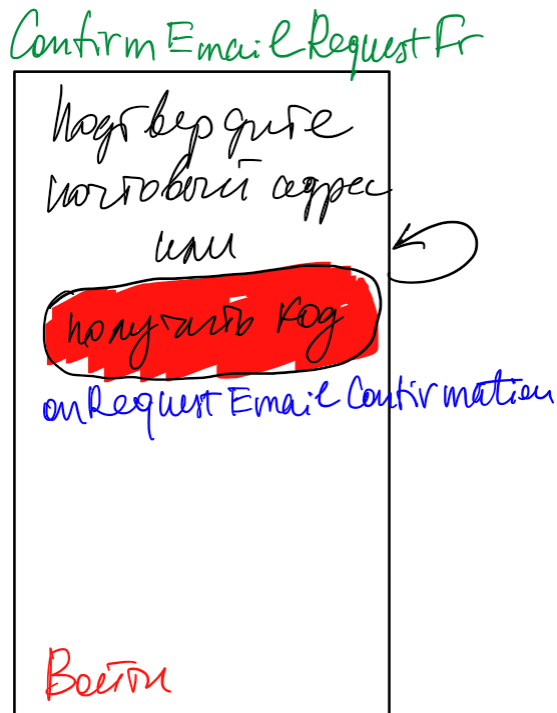 ConfirmEmailRequestFr
Подтвердите
почтовый адрес
или
получить код
onRequestEmailConfirmation
Войти